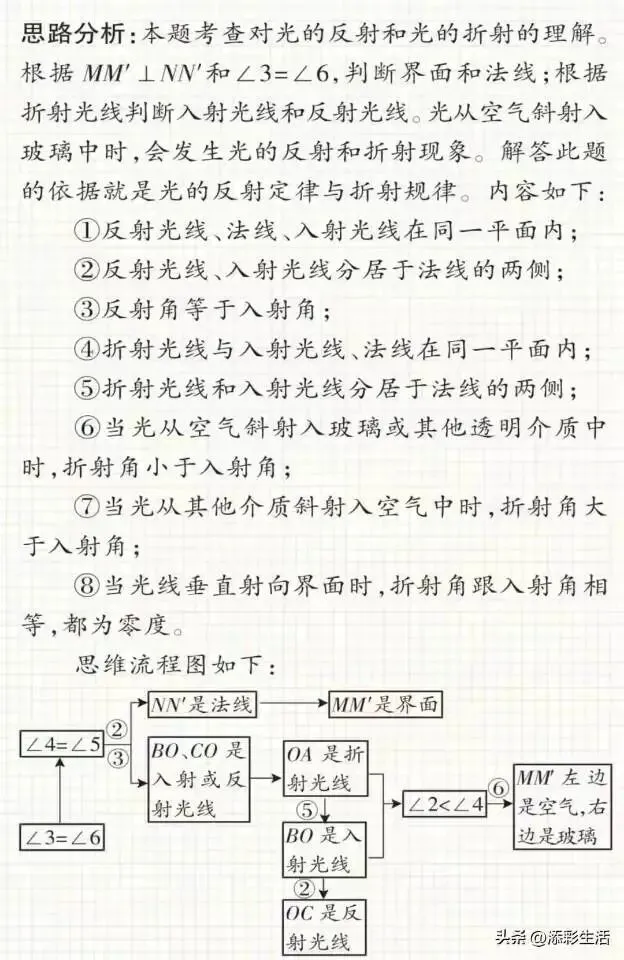 思路分析:本题考查对光的反射和光的折射的理解。
根据 MM′⊥NN′和∠3=∠6,判断界面和法线;根据
折射光线判断入射光线和反射光线。光从空气斜射入
玻璃中时,会发生光的反射和折射现象。解答此题
的依据就是光的反射定律与折射规律。内容如下:
①反射光线、法线、入射光线在同一平面内;
②反射光线、入射光线分居于法线的两侧;
③反射角等于入射角;
④折射光线与入射光线、法线在同一平面内;
⑤折射光线和入射光线分居于法线的两侧;
⑥当光从空气斜射入玻璃或其他透明介质中
时,折射角小于入射角;
⑦当光从其他介质斜射入空气中时,折射角大
于入射角;
⑧当光线垂直射向界面时,折射角跟入射角相
等,都为零度。
思维流程图如下:
NN′是法线
MM′是界面
∠4=∠5
②
③
BO、CO 是
入射或反
射光线
OA 是折
射光线
∠2<∠4
⑥
MM′左边
是空气,右
边是玻璃
⑤
∠3=∠6
BO 是入
射光线
②
OC 是反
射光线
头条 @添彩生活